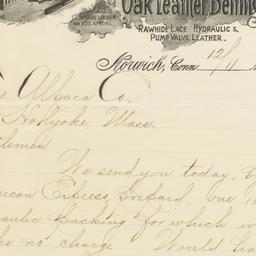 Oak Leather Belting
RAWHIDE LACE HYDRAULIC &
PUMP VALVE LEATHER.
Norwich, Conn 12/11
Alpaca Co.
Holyoke, Mass.
tlemen
We send you today,
rican Express, prepaid, one
aulic Packing for which w
ke no charge. Would